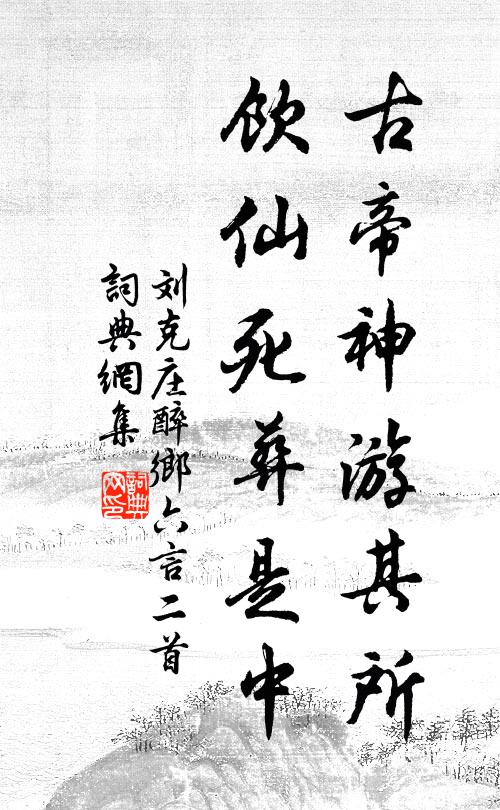 古帝神游其所
飲仙死葬是中
刘克庄醉鄉六言二首
詞典網集
詞典网印